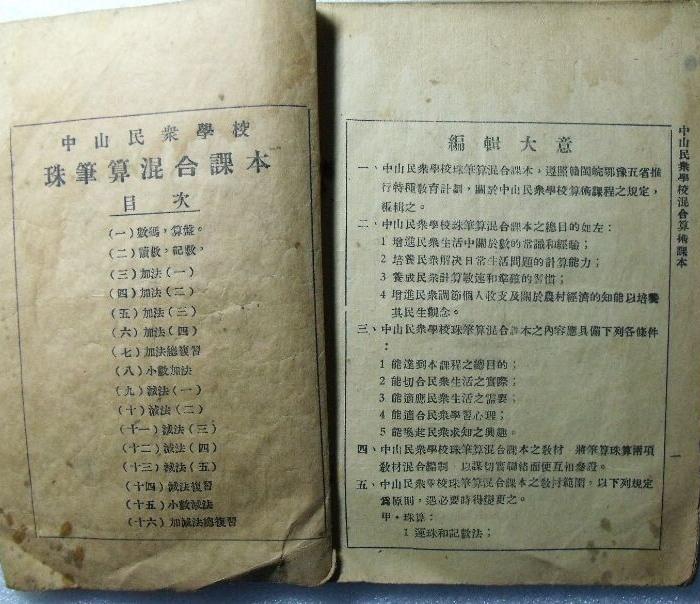 中山民衆學校
珠筆算混合課本
目次
（一）數碼，算盤。
（二）讀數，記數。
（三）加法（一）
（四）加法（二）
（五）加法（三）
（六）加法（四）
（七）加法總複習
（八）小數加法
（九）減法（一）
（十）減法（二）
（十一）減法（三）
（十二）減法（四）
（十三）減法（五）
（十四）減法複習
（十五）小數減法
（十六）加減法總複習
編輯大意
一、中山民衆學校珠筆算混合課本，遵照贛閩皖鄂豫五省推
行特種教育計劃，關於中山民衆學校算術課程之規定，
編輯之。
二、中山民衆學校珠筆算混合課本之總目的如左：
1 增進民衆生活中關於數的常識和經驗；
2 培養民衆解決日常生活問題的計算能力；
3 養成民衆計算敏速和準確的習慣；
4 增進民衆調節個人收支及關於農村經濟的知能以培養
其民生觀念。
三、中山民衆學校珠筆算混合課本之內容應具備下列各條件
：
1 能達到本課程之總目的；
2 能切合民衆生活之實際；
3 能適應民衆生活之需要；
4 能適合民衆學習心理；
5 能喚起民衆求知之興趣。
四、中山民衆學校珠筆算混合課本之教材 將筆算珠算兩項
教材混合編制 以謀切實聯絡而便互相參證。
五、中山民衆學校珠筆算混合課本之教材範圍，以下列規定
爲原則，遇必要時得變更之。
甲·珠算：
1 運珠和記數法；
中山民衆學校混合算術課本
一